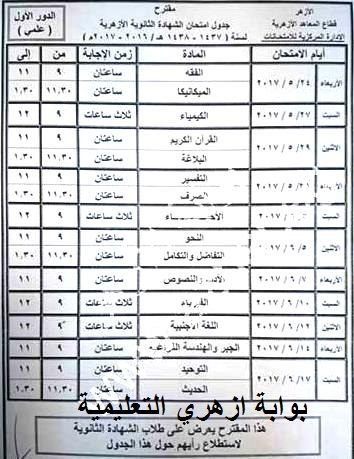 الأزهر
قطاع المعاهد الأزهرية
الإدارة المركزية للامتحانات
مقترح
جدول امتحان الشهادة الثانوية الأزهرية
لسنة ( ١٤٣٧ - ١٤٣٨ هـ / ٢٠١٦ - ٢٠١٧ م )
الدور الأول
( علمي )
أيام الامتحان المادة زمن الإجابة من إلى
الأربعاء ٢٤ / ٥ / ٢٠١٧ الفقه ساعتان ٩ ١١
الميكانيكا ساعتان ١١,٣٠ ١,٣٠
السبت ٢٧ / ٥ / ٢٠١٧ الكيمياء ثلاث ساعات ٩ ١٢
الاثنين ٢٩ / ٥ / ٢٠١٧ القرآن الكريم ساعتان ٩ ١١
البلاغة ساعتان ١١,٣٠ ١,٣٠
الأربعاء ٣١ / ٥ / ٢٠١٧ التفسير ساعتان ٩ ١١
الصرف ساعتان ١١,٣٠ ١,٣٠
السبت ثلاث ساعات ٩ ١٢
الاثنين ٥ / ٦ / ٢٠١٧ النحو ساعتان ٩ ١١
التفاضل والتكامل ساعتان ١١,٣٠ ١,٣٠
الأربعاء ٧ / ٦ / ٢٠١٧ الأدب والنصوص ساعتان ٩ ١١
السبت ١٠ / ٦ / ٢٠١٧ الفيزياء ثلاث ساعات ٩ ١٢
الاثنين ١٢ / ٦ / ٢٠١٧ اللغة الأجنبية ثلاث ساعات ٩ ١٢
الأربعاء ١٤ / ٦ / ٢٠١٧ الجبر والهندسة الفراغية ساعتان ٩ ١١
السبت ١٧ / ٦ / ٢٠١٧ التوحيد ساعتان ٩ ١١
الحديث ساعتان ١١,٣٠ ١,٣٠
بوابة ازهري التعليمية
هذا المقترح يعرض على طلاب الشهادة الثانوية
لاستطلاع رأيهم حول هذا الجدول